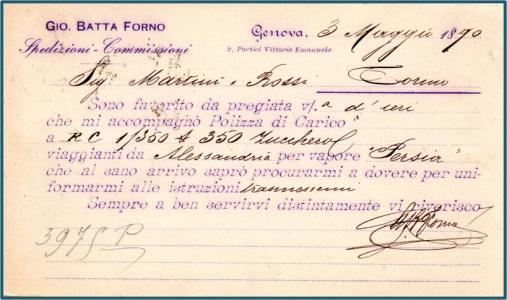 GIO. BATTA FORNO
Spedizioni - Commissioni
Genova, 3 Maggio 1890
2, Portici Vittorio Emanuele
Sigg Martini e Rossi Torino
Sono favorito da pregiata v/a d'ieri
che mi accompagnò Polizza di Carico
a RC 1/350 350 Zucchero
viaggianti da Alessandria per vapore "Persia"
che al sano arrivo saprò procurarmi a dovere per uni-
formarmi alle istruzioni trasmessemi
Sempre a ben servirvi distintamente vi riverisco
3975 P